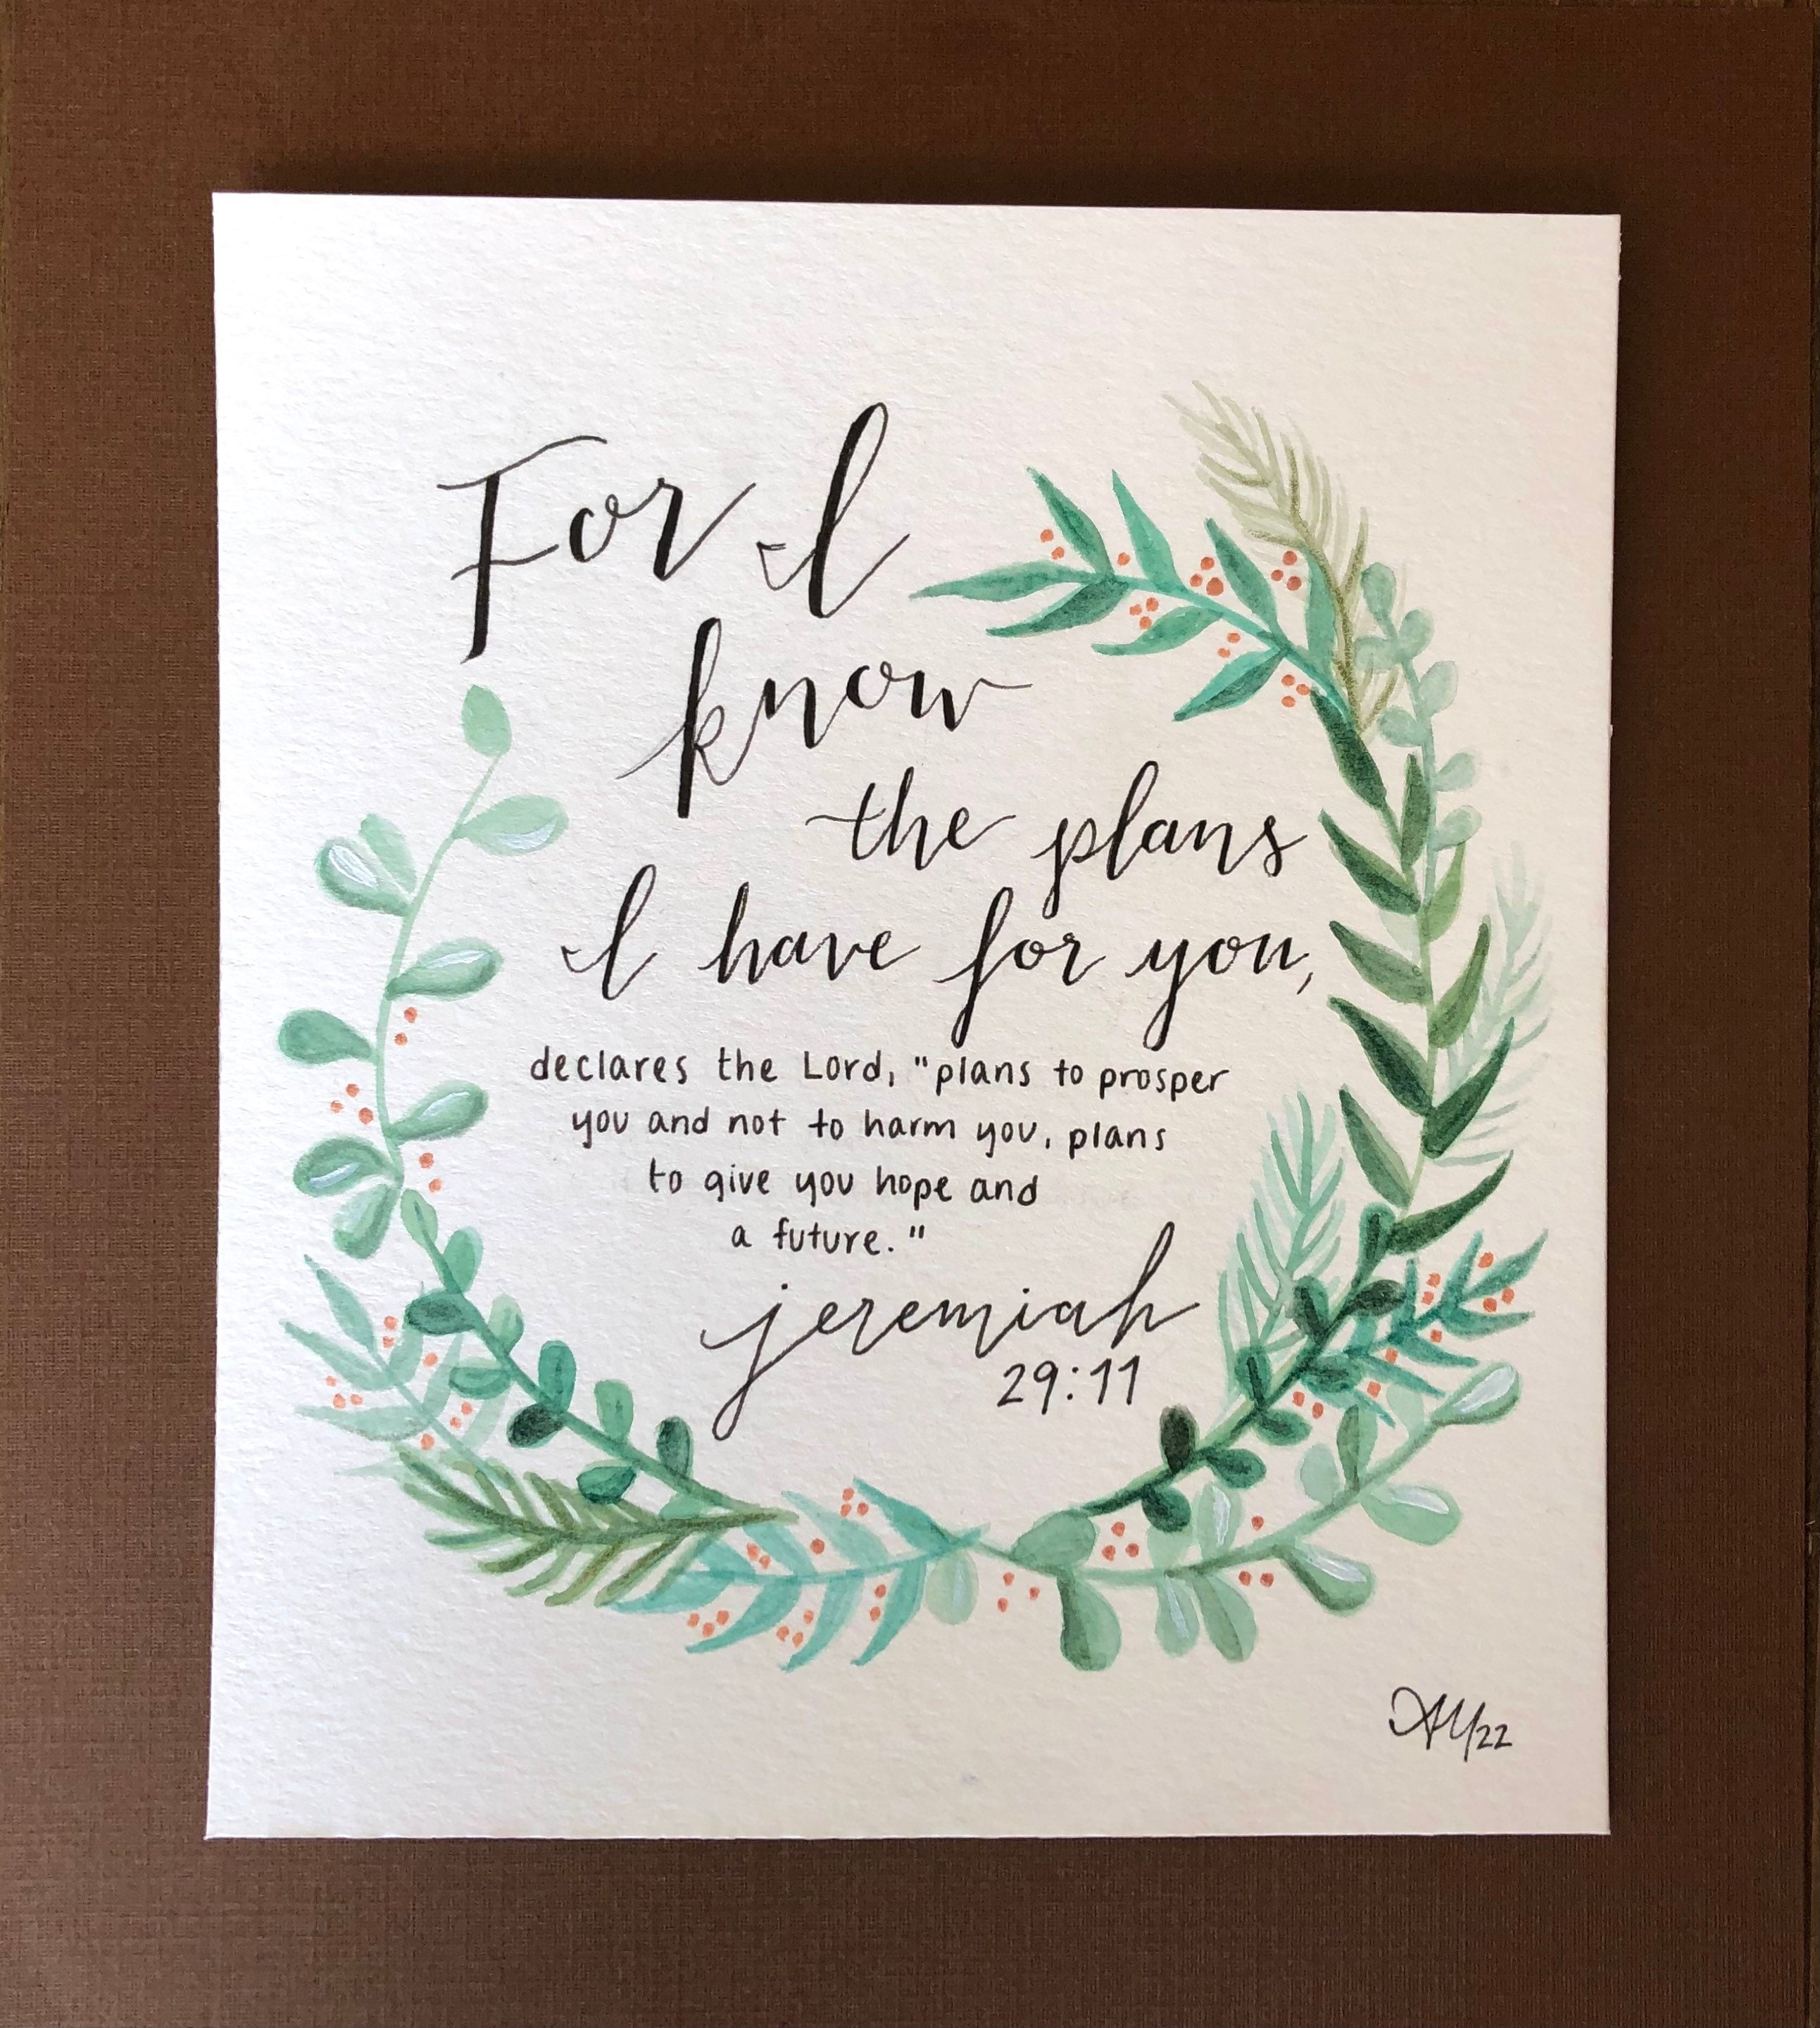 For I
know
the plans
I have for you,
declares the Lord, "plans to prosper
you and not to harm you, plans
to give you hope and
a future."
jeremiah
29:11
22